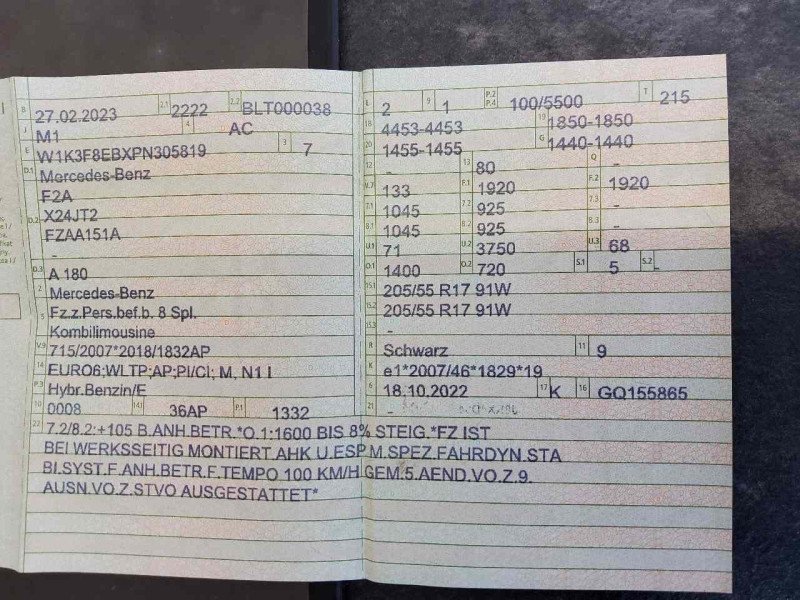 B 27.02.2023 2.1 2222 2.2 BLT000038
J M1 4 AC
E W1K3F8EBXPN305819 3 7
D.1 Mercedes-Benz
F2A
D.2 X24JT2
FZAA151A
-
D.3 A 180
2 Mercedes-Benz
5 Fz.z.Pers.bef.b. 8 Spl.
Kombilimousine
V.9 715/2007*2018/1832AP
14 EURO6;WLTP;AP;PI/CI; M, N1 I
P.3 Hybr.Benzin/E
10 0008 14.1 36AP P.1 1332
L 2 9 1 P.2 P.4 100/5500 T 215
18 4453-4453 19 1850-1850
20 1455-1455 G 1440-1440
12 - 13 80 Q -
V.7 133 F.1 1920 F.2 1920
7.1 1045 7.2 925 7.3 -
8.1 1045 8.2 925 8.3 -
U.1 71 U.2 3750 U.3 68
O.1 1400 O.2 720 S.1 5 S.2 -
15.1 205/55 R17 91W
15.2 205/55 R17 91W
15.3 -
R Schwarz 11 9
K e1*2007/46*1829*19
6 18.10.2022 17 K 16 GQ155865
21 -
22 7.2/8.2:+105 B.ANH.BETR.*O.1:1600 BIS 8% STEIG.*FZ IST
BEI WERKSSEITIG MONTIERT.AHK U.ESP M.SPEZ.FAHRDYN.STA
BI.SYST.F.ANH.BETR.F.TEMPO 100 KM/H GEM.5.AEND.VO.Z.9.
AUSN.VO.Z.STVO AUSGESTATTET*